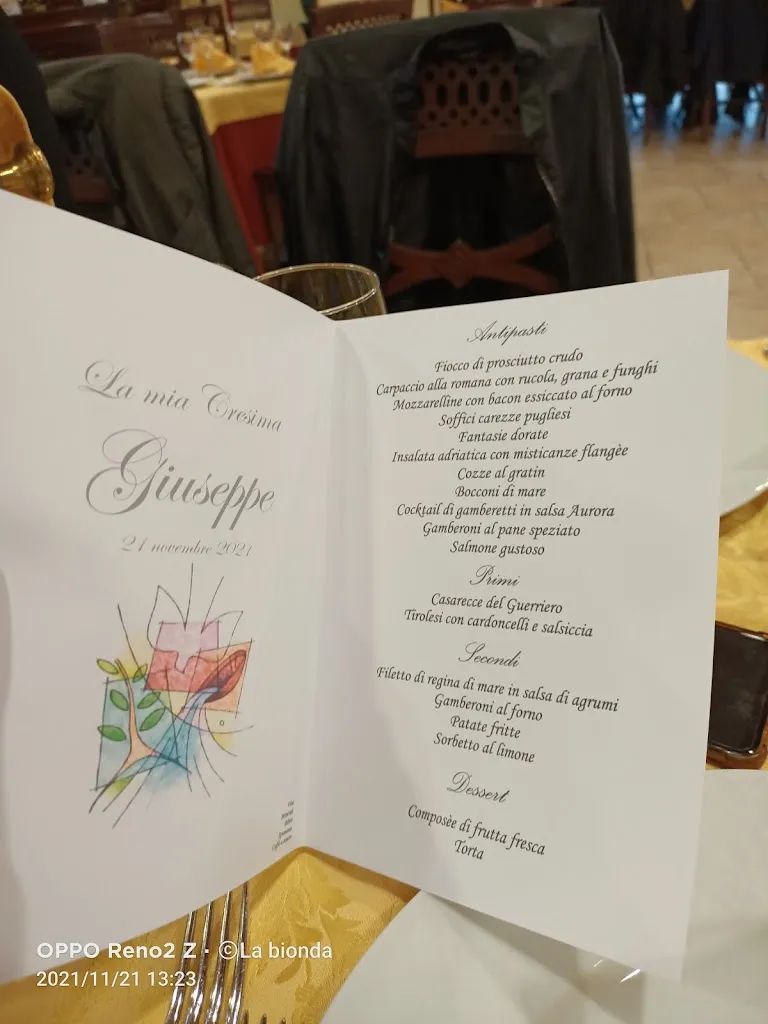 La mia Cresima
Giuseppe
21 novembre 2021
Antipasti
Fiocco di prosciutto crudo
Carpaccio alla romana con rucola, grana e funghi
Mozzarelline con bacon essiccato al forno
Soffici carezze pugliesi
Fantasie dorate
Insalata adriatica con misticanze flangèe
Cozze al gratin
Bocconi di mare
Cocktail di gamberetti in salsa Aurora
Gamberoni al pane speziato
Salmone gustoso
Primi
Casarecce del Guerriero
Tirolesi con cardoncelli e salsiccia
Secondi
Filetto di regina di mare in salsa di agrumi
Gamberoni al forno
Patate fritte
Sorbetto al limone
Dessert
Composèe di frutta fresca
Torta
OPPO Reno2 Z · ©La bionda
2021/11/21 13:23